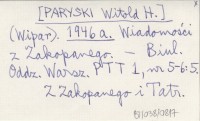 [PARYSKI Witold H.]
(Wipar). 1946a. Wiadomości
z Zakopanego. – Biul.
Oddz. Warsz. PTT 1, nr 5-6:5.
Z Zakopanego i Tatr.